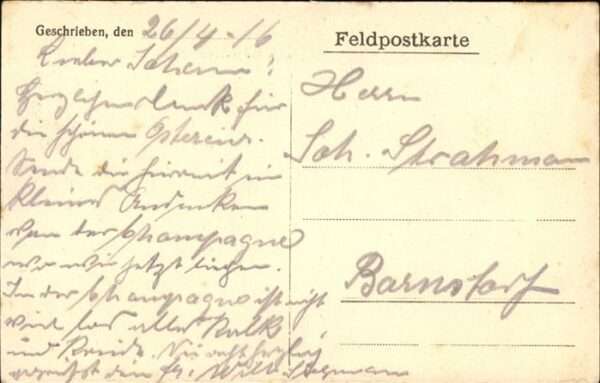 Geschrieben, den 26/4-16
Feldpostkarte
Lieber Johann!
Herzlichen Dank für
die schönen Ostereier.
Sende dir hiermit ein
kleines Andenken
von der Champagne
wo wir jetzt liegen.
In der Champagne ist nicht
viel los alles Kalk
und Kreide. Sei recht herzlich
gegrüßt dein Fr. Wilh.
Herrn
Joh. Strahmann
Barnstorf